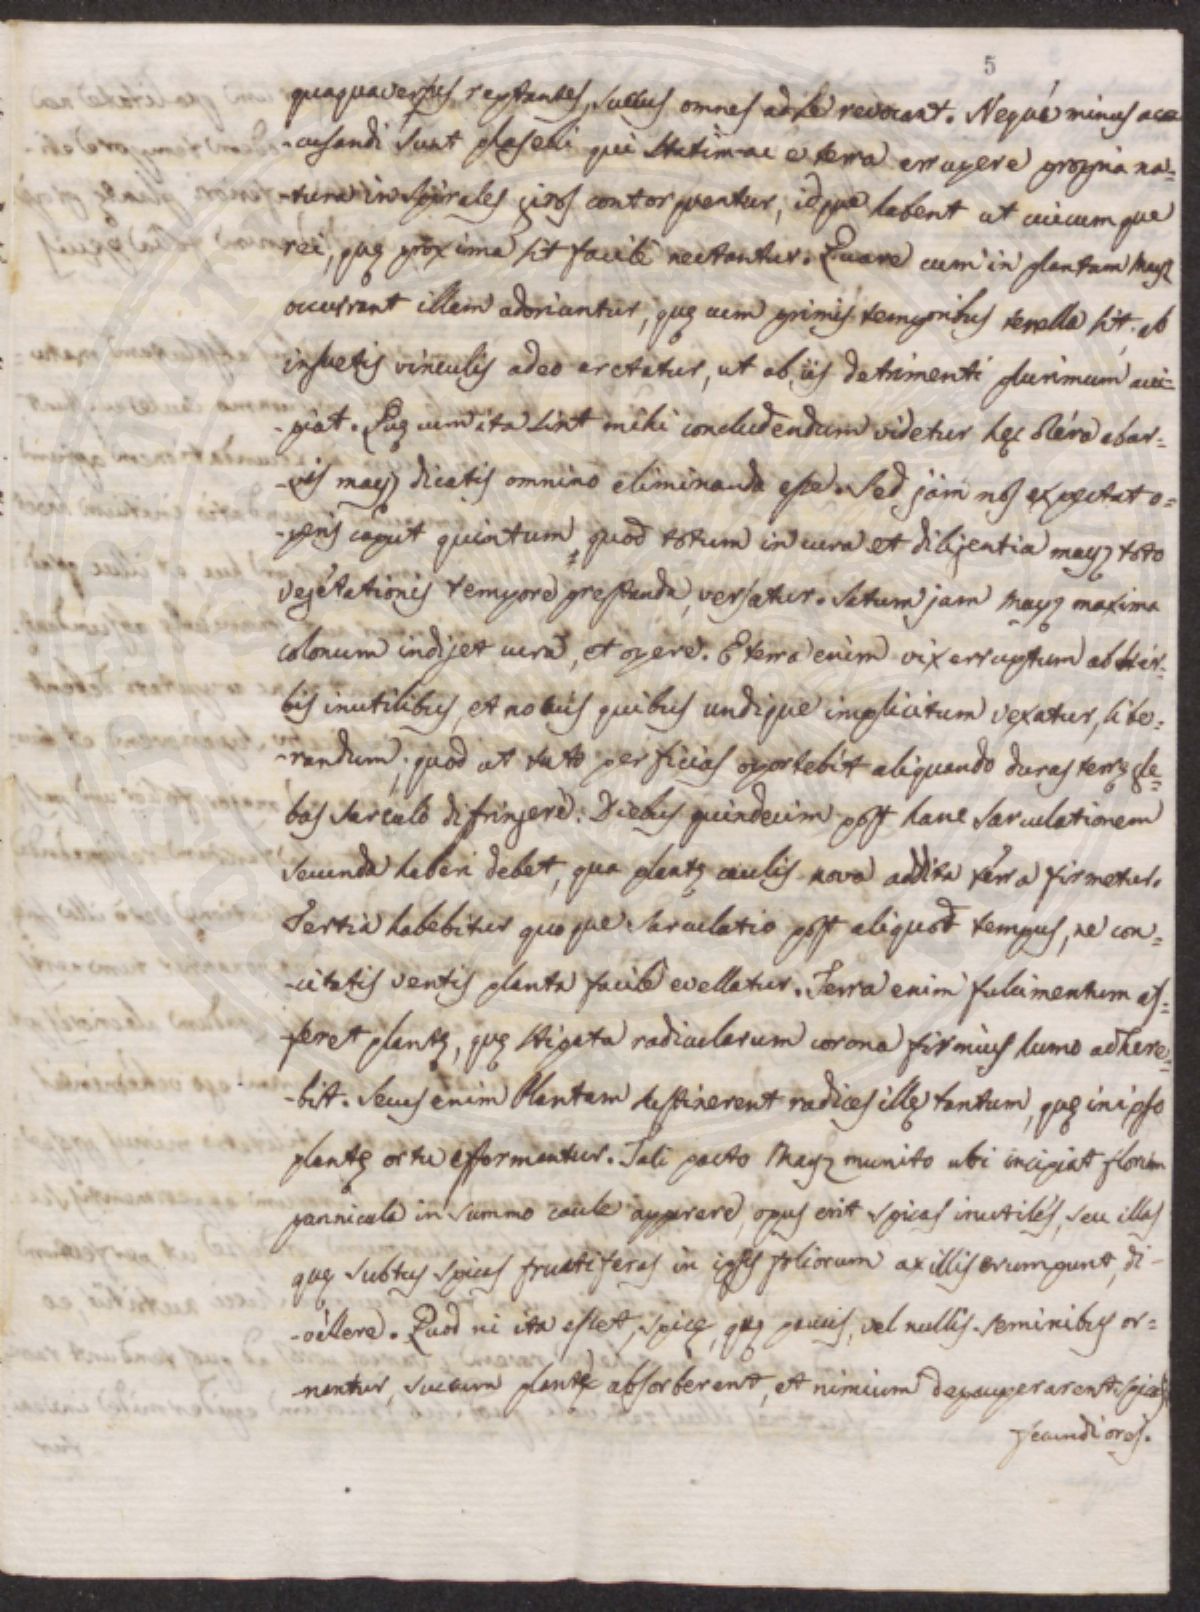 5
quaquaversus reptantes, succus omnes ad se revocant. Neque minus acc
-cusandi sunt phaseoli qui statim ac e terra errupere propria na=
-tura in spirales giros contorquentur, idque habent ut cuicumque
rei, quę proxima sit facile nectantur. Quare cum in plantam Mayz
occurrant illam adoriuntur, quę cum primis temporibus tenella sit, ab
insuetis vinculis adeo arctatur, ut ab iis detrimenti plurimum acci=
-piat. Quę cum ita sint mihi concludendum videtur hęc olera ab ar=
-vis mayz dicatis omnino eliminanda esse. Sed jam nos expectat o=
-peris caput quintum quod totum in cura et diligentia mayz toto
vegetationis tempore prestanda, versatur. Satum jam Mayz maxima
colonum indiget cura, et opere. E terra enim vix erruptum ab her=
bis inutilibus, et noxiis quibus undique implicitum vexatur, libe=
-randum; quod ut tuto perficias oportebit aliquando duras terrę gle=
bas sarculo difringere: Diebus quindecim post hanc sarculationem
secunda haberi debet, qua plantę caulis nova addita terra firmetur.
Tertia habebitur quoque sarculatio post aliquod tempus, ne con=
-citatis ventis planta facile evellatur. Terra enim fulcimentum af=
-feret plantę, quę stipata radicularum corona firmius humo adhere=
-bit. Secus enim Plantam sustinerent radices illę tantum, quę in ipso
plantę ortu efformantur. Tali pacto Mayz munito ubi incipiat florum
pannicula in summo caule apparere, opus erit spicas inutiles, seu illas
quę subtus spicas fructiferas in ipsis foliorum axillis erumpunt, di-
-vellere. Quod ni ita esset, spicę, quę paucis, vel nullis seminibus or=
-nantur, succum plantę absorberent, et nimium depauperarent spicas
fecundiores.